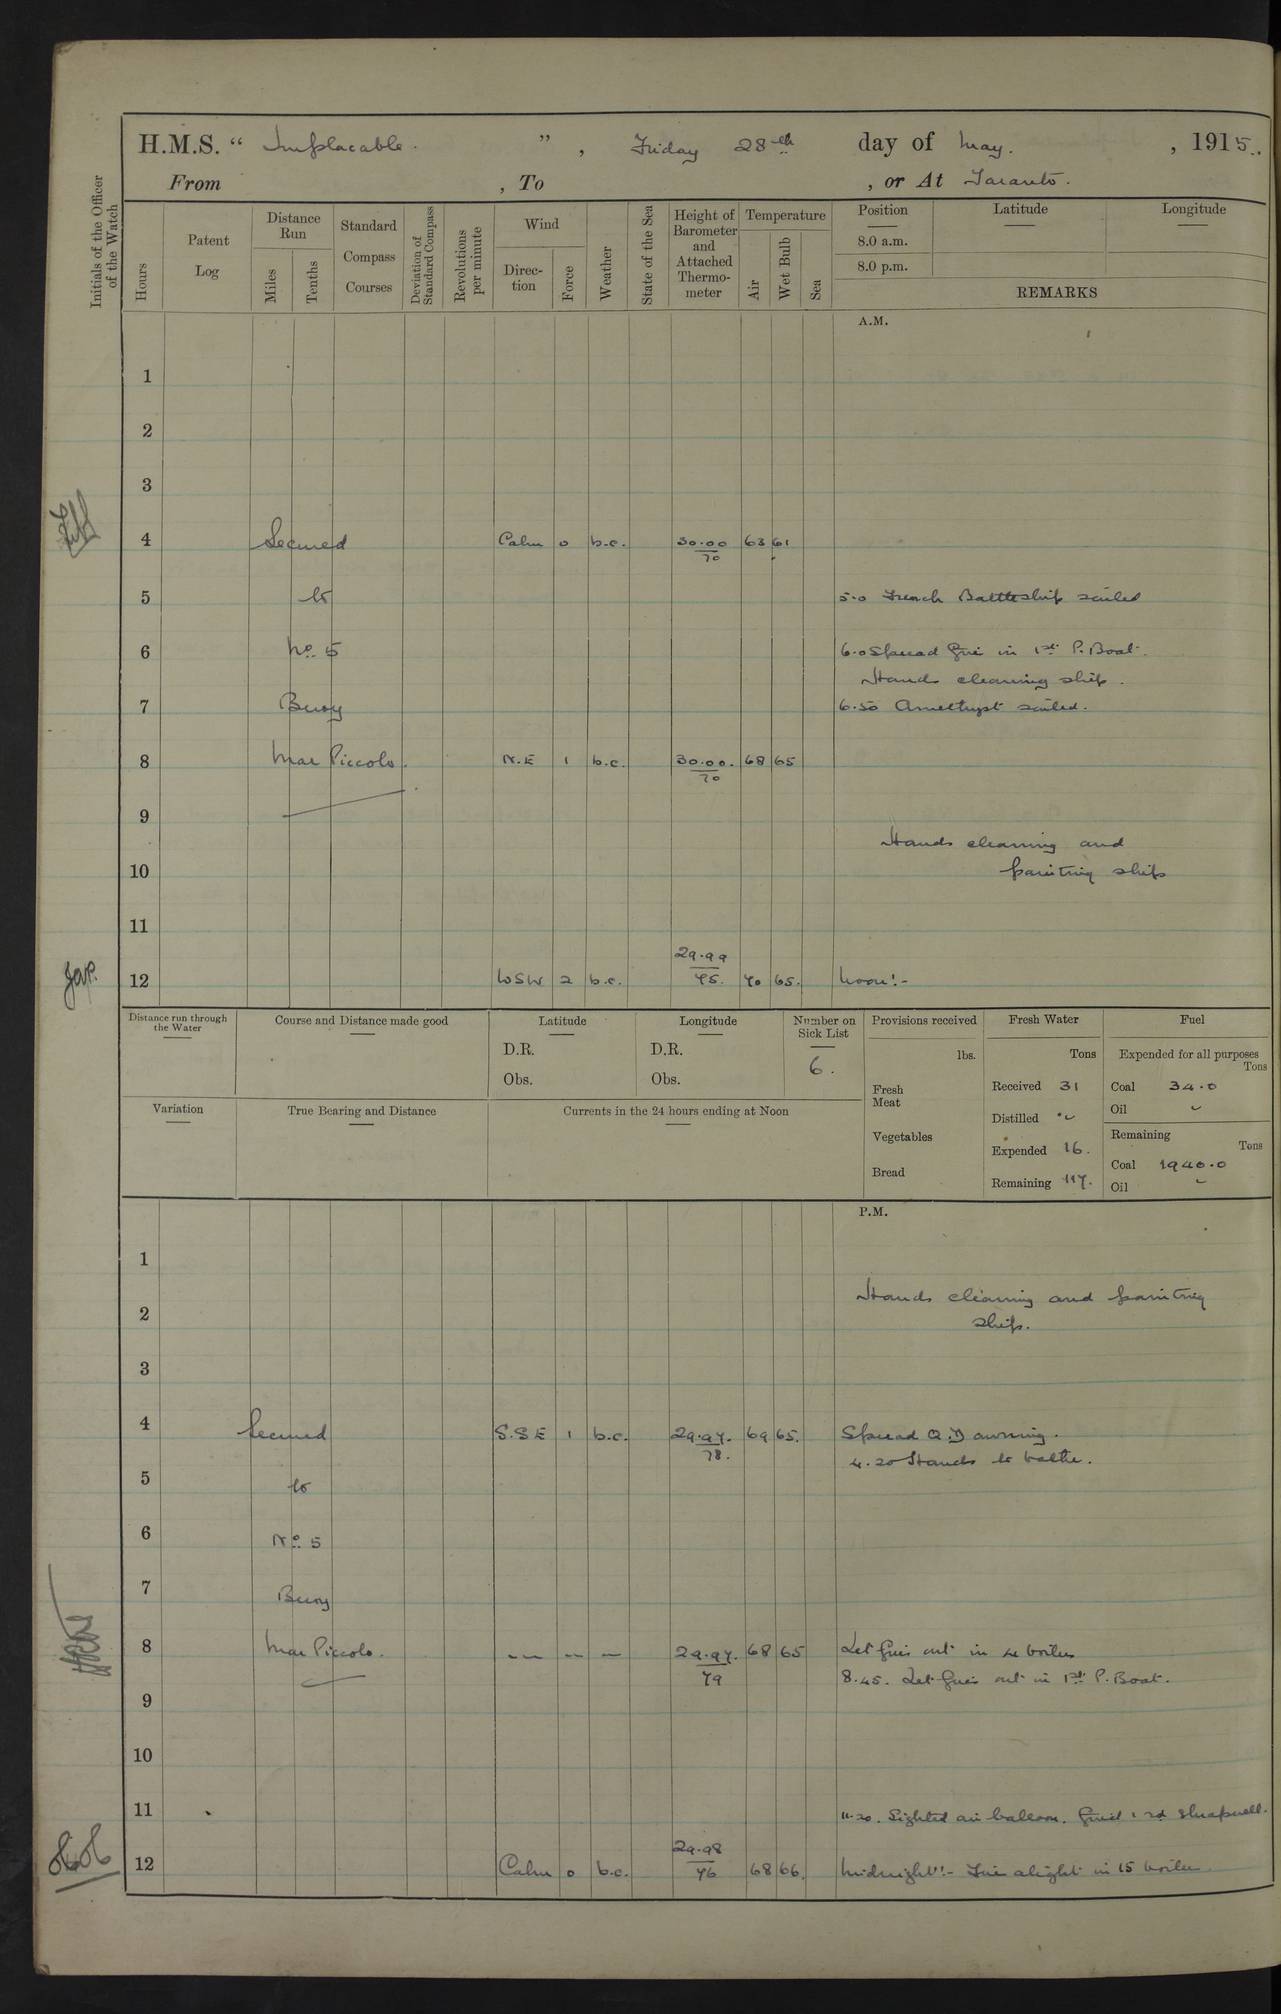 H.M.S. “ Implacable. ” , Friday 28th day of May. , 1915.
From , To , or At Taranto.
Initials of the Officer of the Watch
Hours
Patent Log
Distance Run
Miles
Tenths
Standard Compass Courses
Deviation of Standard Compass
Revolutions per minute
Wind
Direction
Force
Weather
State of the Sea
Height of Barometer and Attached Thermometer
Temperature
Air
Wet Bulb
Sea
Position Latitude Longitude
8.0 a.m.
8.0 p.m.
REMARKS
A.M.
1
2
3
4 Secured Calm 0 b.c. 30.00 63 61
70
5 to 5.0 French Battleship sailed
6 No. 5 6.0 Spread fire in 1st P. Boat.
Hands cleaning ship.
7 Buoy 6.50 Amethyst sailed.
8 Mar Piccolo. N.E 1 b.c. 30.00. 68 65
70
9
Hands cleaning and
10 painting ship
11
29.99
12 WSW 2 b.c. 75. 70 65. Noon:-
Distance run through the Water
Course and Distance made good
Latitude
D.R.
Obs.
Longitude
D.R.
Obs.
Number on Sick List
6.
Provisions received
lbs.
Fresh Meat
Vegetables
Bread
Fresh Water
Tons
Received 31
Distilled
Expended 16.
Remaining 117.
Fuel
Expended for all purposes
Tons
Coal 34.0
Oil
Remaining
Tons
Coal 1940.0
Oil
Variation
True Bearing and Distance
Currents in the 24 hours ending at Noon
P.M.
1
Hands cleaning and painting
2 ship.
3
4 Secured S.S.E 1 b.c. 29.97. 69 65. Spread Q.D awning.
78. 4.20 Hands to bathe.
5 to
6 No. 5
7 Buoy
8 Mar Piccolo. — — — 29.97. 68 65 Let fires out in 4 boilers
79 8.45. Let fires out in 1st P. Boat.
9
10
11 11.20. Sighted air balloon. fired 1 rd shrapnell.
29.98
12 Calm 0 b.c. 76 68 66. Midnight:- Fire alight in 15 boilers